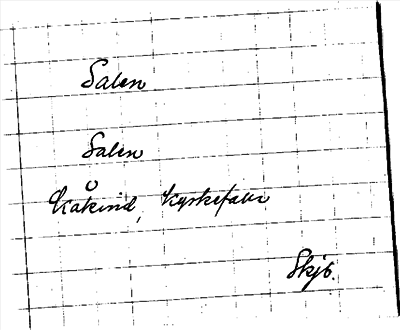 Salen
Salen
Kåkind, Kyrkefalla
Skjb.